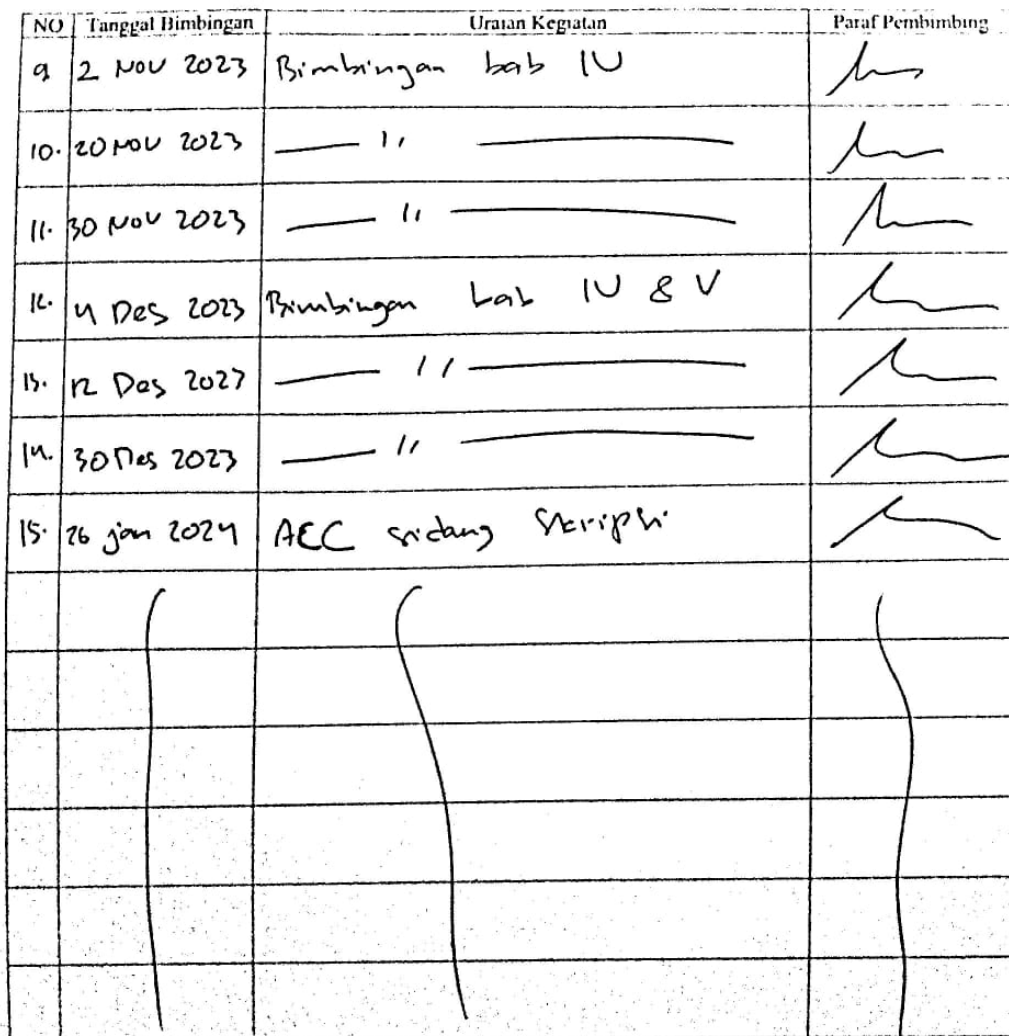 NO Tanggal Bimbingan Uraian Kegiatan Paraf Pembimbing
9 2 NOV 2023 Bimbingan bab IV
10. 20 NOV 2023 —— " ——
11. 30 NOV 2023 —— " ——
12. 4 Des 2023 Bimbingan bab IV & V
13. 12 Des 2023 —— " ——
14. 30 Des 2023 —— " ——
15. 26 jan 2024 ACC sidang Skripsi